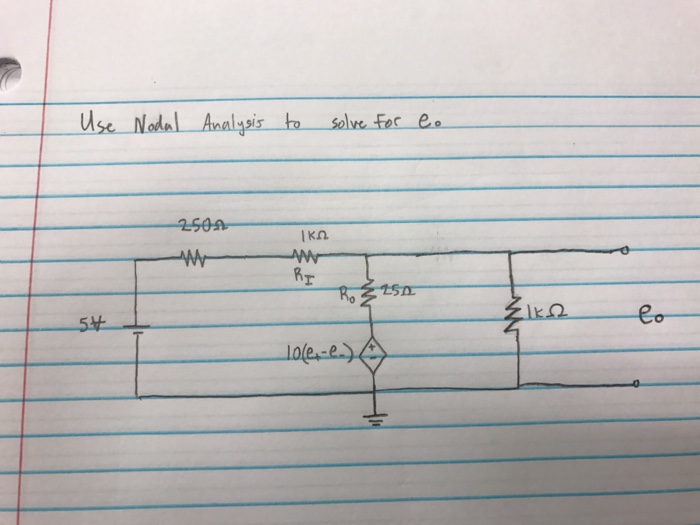 Use Nodal Analysis to solve for e₀
250Ω
1KΩ
R_I
R₀ 25Ω
5V
10(e₊-e₋)
+
-
1KΩ
e₀